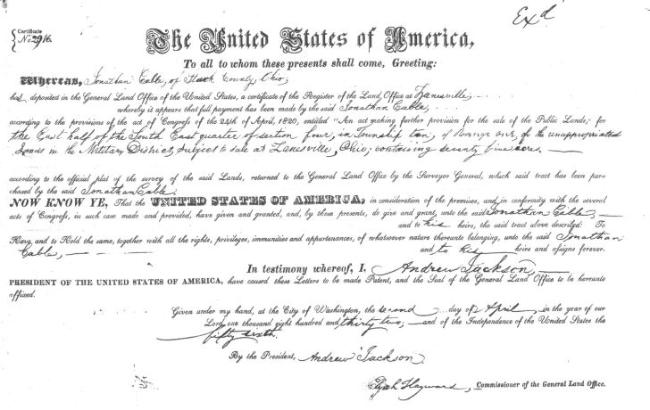 Ex^d
Certificate
No. 2916.
The United States of America,
To all to whom these presents shall come, Greeting:
Whereas, Jonathan Cable, of Stark County, Ohio,
has deposited in the General Land Office of the United States, a certificate of the Register of the Land Office at Zanesville,
whereby it appears that full payment has been made by the said Jonathan Cable,
according to the provisions of the act of Congress of the 24th of April, 1820, entitled "An act making further provision for the sale of the Public Lands," for
the East half of the South East quarter of section four, in Township ten, of Range one, of the unappropriated
lands in the Military District, subject to sale at Zanesville, Ohio, containing seventy nine acres.
according to the official plat of the survey of the said Lands, returned to the General Land Office by the Surveyor General, which said tract has been pur-
chased by the said Jonathan Cable:
NOW KNOW YE, That the UNITED STATES OF AMERICA, in consideration of the premises, and in conformity with the several
acts of Congress, in such case made and provided, have given and granted, and, by these presents, do give and grant, unto the said Jonathan Cable,
and to his heirs, the said tract above described: To
Have, and to Hold the same, together with all the rights, privileges, immunities and appurtenances, of whatsoever nature thereunto belonging, unto the said Jonathan
Cable, and to his heirs and assigns forever.
In testimony whereof, I, Andrew Jackson
PRESIDENT OF THE UNITED STATES OF AMERICA, have caused these Letters to be made Patent, and the Seal of the General Land Office to be hereunto
affixed.
Given under my hand, at the City of Washington, the second day of April in the year of our
Lord one thousand eight hundred and thirty two, and of the Independence of the United States the
fifty sixth.
By the President, Andrew Jackson
Elijah Hayward, Commissioner of the General Land Office.